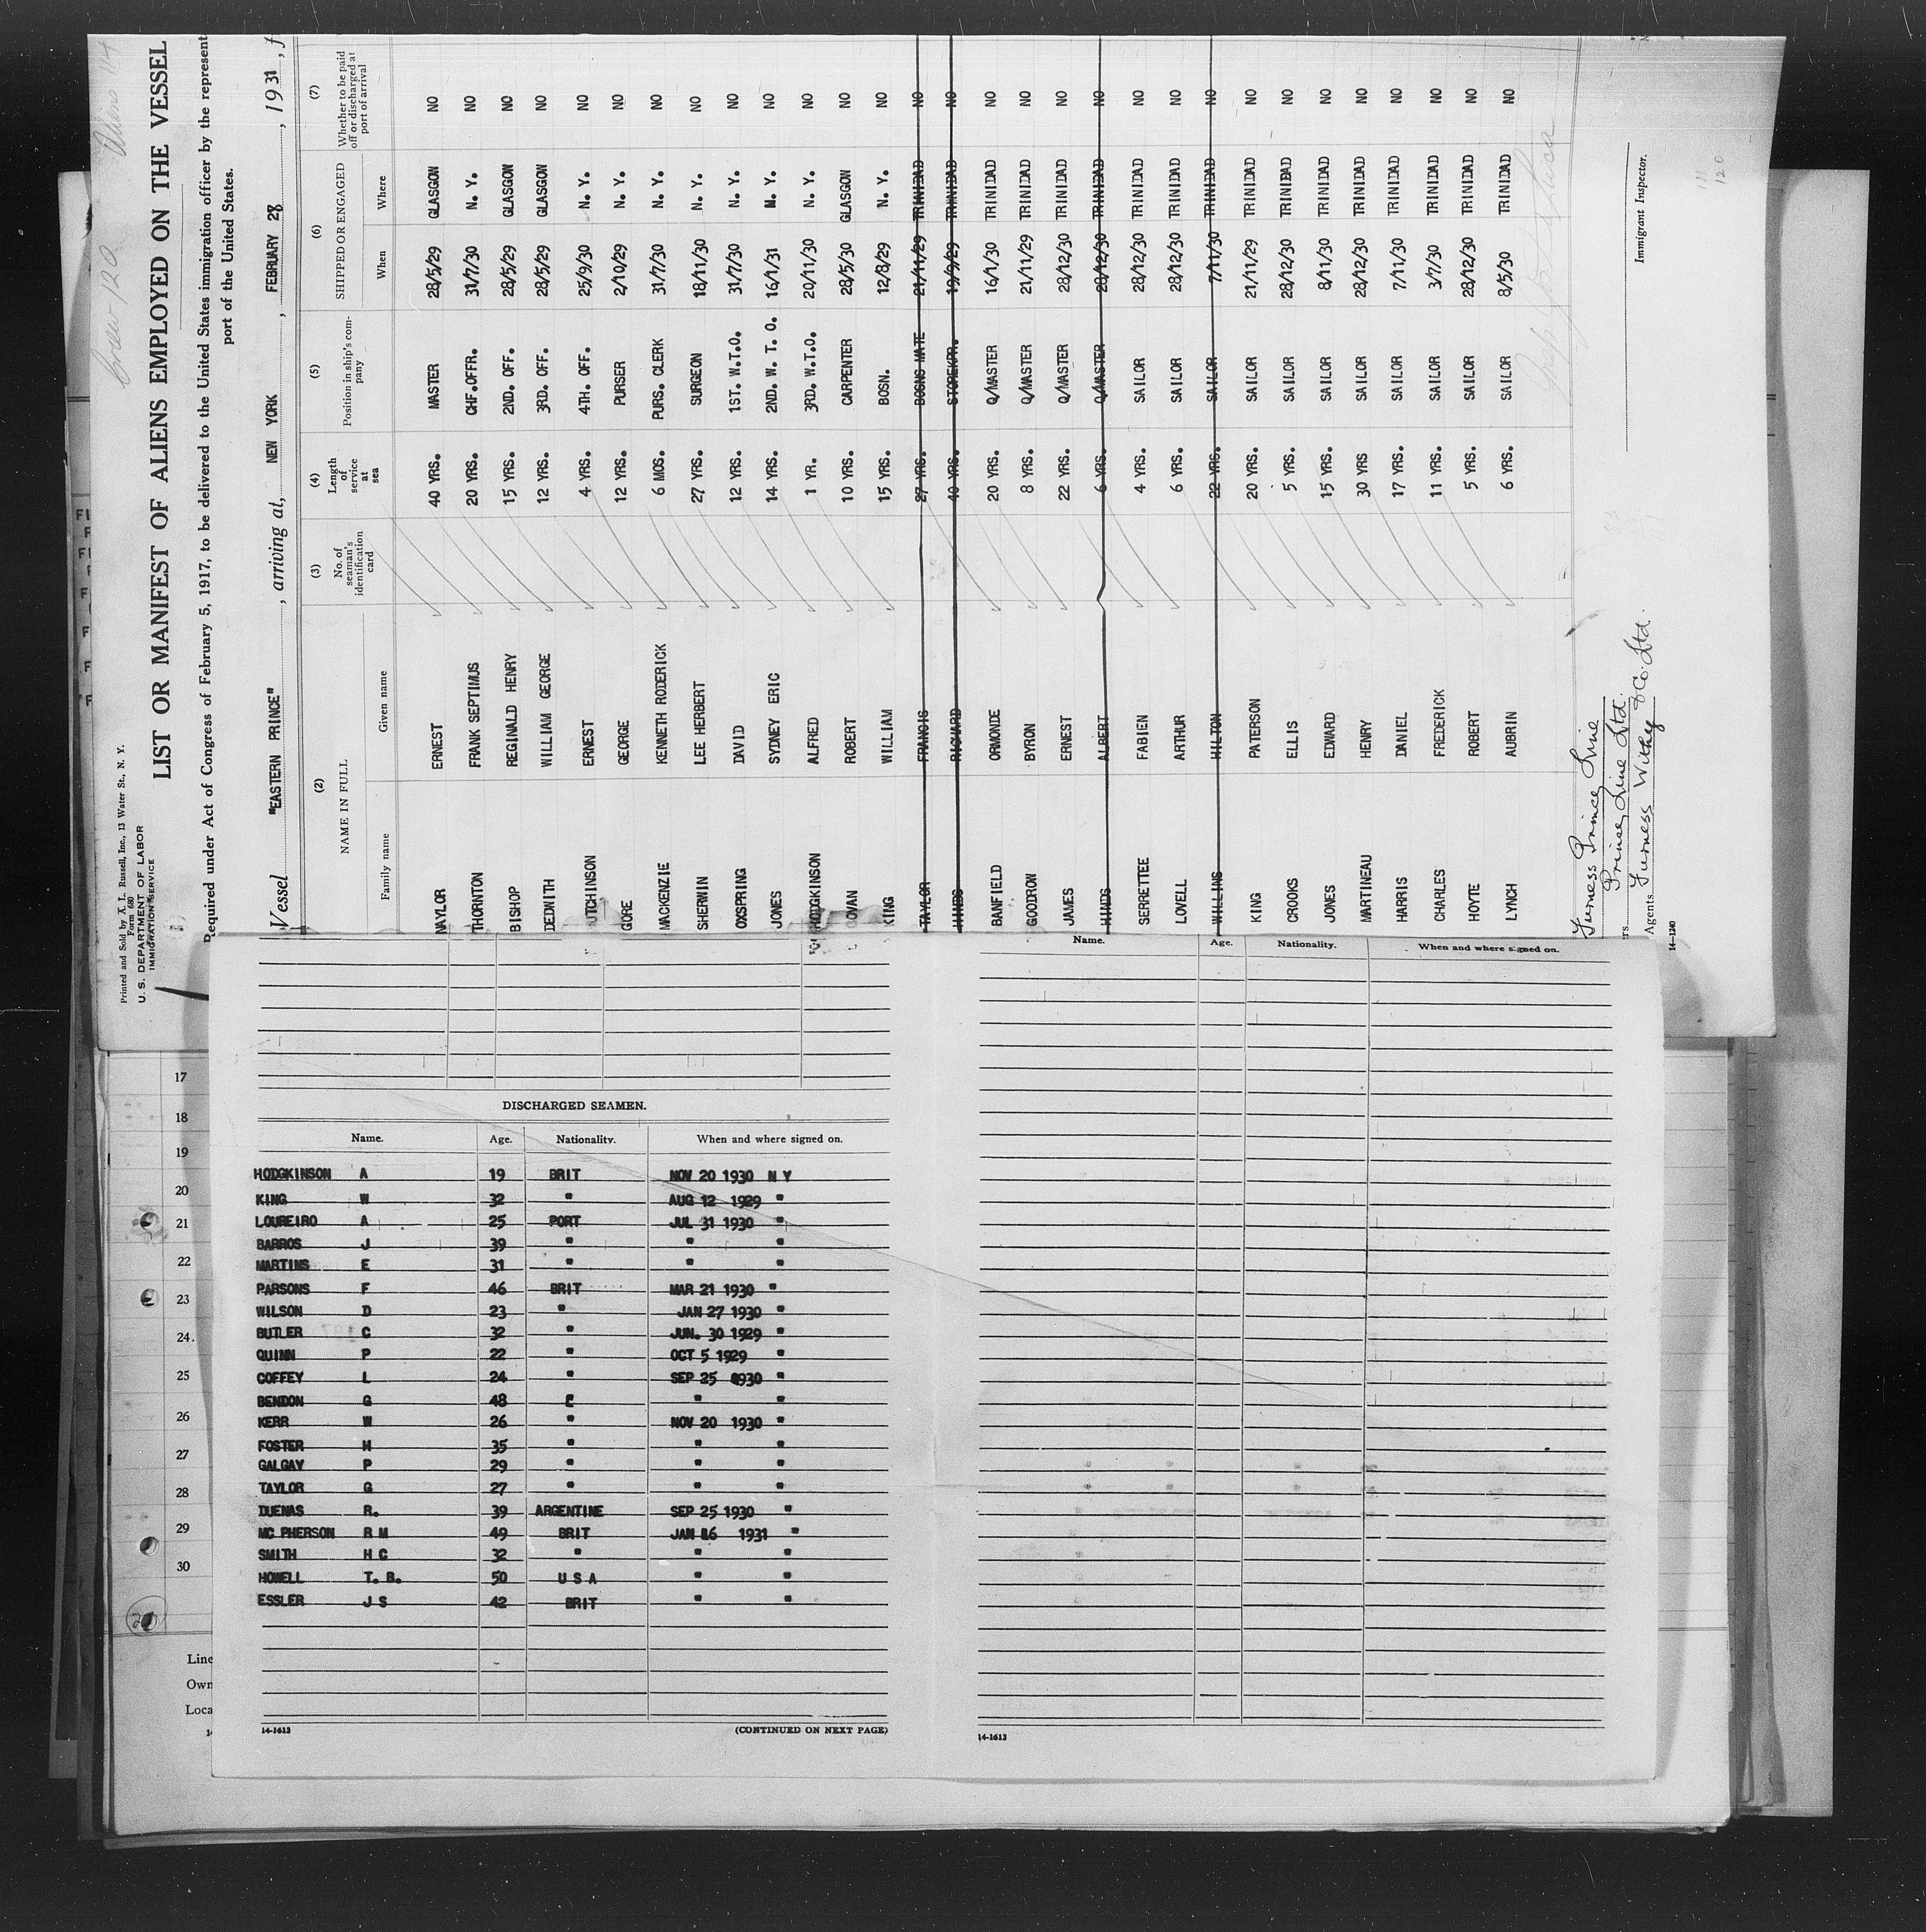 Crew 120 Aliens 114
Printed and Sold by A. L. Russell, Inc., 13 Water St., N. Y.
Form 680
U. S. DEPARTMENT OF LABOR
IMMIGRATION SERVICE
LIST OR MANIFEST OF ALIENS EMPLOYED ON THE VESSEL
Required under Act of Congress of February 5, 1917, to be delivered to the United States immigration officer by the represent
port of the United States.
Vessel "EASTERN PRINCE", arriving at, NEW YORK, FEBRUARY 28, 1931, f
(2) (3) (4) (5) (6) (7)
NAME IN FULL No. of seaman's identification card Length of service at sea Position in ship's com-pany SHIPPED OR ENGAGED Whether to be paid off or discharged at port of arrival
Family name Given name When Where
NAYLOR ERNEST 40 YRS. MASTER 28/5/29 GLASGOW NO
THORNTON FRANK SEPTIMUS 20 YRS. CHF.OFFR. 31/7/30 N. Y. NO
BISHOP REGINALD HENRY 15 YRS. 2ND. OFF. 28/5/29 GLASGOW NO
DEDWITH WILLIAM GEORGE 12 YRS. 3RD. OFF. 28/5/29 GLASGOW NO
UTCHINSON ERNEST 4 YRS. 4TH. OFF. 25/9/30 N. Y. NO
GORE GEORGE 12 YRS. PURSER 2/10/29 N. Y. NO
MACKENZIE KENNETH RODERICK 6 MOS. PURS. CLERK 31/7/30 N. Y. NO
SHERWIN LEE HERBERT 27 YRS. SURGEON 18/11/30 N. Y. NO
OXSPRING DAVID 12 YRS. 1ST. W.T.O. 31/7/30 N. Y. NO
JONES SYDNEY ERIC 14 YRS. 2ND. W. T. O. 16/1/31 N. Y. NO
HODGKINSON ALFRED 1 YR. 3RD. W.T.O. 20/11/30 N. Y. NO
OVAN ROBERT 10 YRS. CARPENTER 28/5/30 GLASGOW NO
KING WILLIAM 15 YRS. BOSN. 12/8/29 N. Y. NO
TAYLOR FRANCIS 27 YRS. BOSNS MATE 21/11/29 TRINIDAD NO
HINDS RICHARD 40 YRS. STOREKPR. 19/9/29 TRINIDAD NO
BANFIELD ORMONDE 20 YRS. Q/MASTER 16/1/30 TRINIDAD NO
GOODROW BYRON 8 YRS. Q/MASTER 21/11/29 TRINIDAD NO
JAMES ERNEST 22 YRS. Q/MASTER 28/12/30 TRINIDAD NO
HINDS ALBERT 6 YRS. Q/MASTER 28/12/30 TRINIDAD NO
SERRETTEE FABIEN 4 YRS. SAILOR 28/12/30 TRINIDAD NO
LOVELL ARTHUR 6 YRS. SAILOR 28/12/30 TRINIDAD NO
WILLINS HILTON 22 YRS. SAILOR 7/11/30 TRINIDAD NO
KING PATERSON 20 YRS. SAILOR 21/11/29 TRINIDAD NO
CROOKS ELLIS 5 YRS. SAILOR 28/12/30 TRINIDAD NO
JONES EDWARD 15 YRS. SAILOR 8/11/30 TRINIDAD NO
MARTINEAU HENRY 30 YRS SAILOR 28/12/30 TRINIDAD NO
HARRIS DANIEL 17 YRS. SAILOR 7/11/30 TRINIDAD NO
CHARLES FREDERICK 11 YRS. SAILOR 3/7/30 TRINIDAD NO
HOYTE ROBERT 5 YRS. SAILOR 28/12/30 TRINIDAD NO
LYNCH AUBRIN 6 YRS. SAILOR 8/5/30 TRINIDAD NO
Furness Prince Line
rs. Prince Line Ltd.
Agents Furness Withy & Co. Ltd.
Immigrant Inspector.
14—1240
120
Name. Age. Nationality. When and where signed on.
DISCHARGED SEAMEN.
Name. Age. Nationality. When and where signed on.
HODGKINSON A 19 BRIT NOV 20 1930 N Y
KING W 32 " AUG 12 1929 "
LOUREIRO A 25 PORT JUL 31 1930 "
BARROS J 39 " " "
MARTINS E 31 " " "
PARSONS F 46 BRIT MAR 21 1930 "
WILSON D 23 " JAN 27 1930 "
BUTLER C 32 " JUN. 30 1929 "
QUINN P 22 " OCT 5 1929 "
COFFEY L 24 " SEP 25 1930 "
BENDON G 48 " "
KERR W 26 " NOV 20 1930 "
FOSTER H 35 " " "
GALGAY P 29 " " "
TAYLOR G 27 " " "
DUENAS R. 39 ARGENTINE SEP 25 1930 "
MC PHERSON R M 49 BRIT JAN 16 1931 "
SMITH H C 32 " " "
HOWELL T. B. 50 U S A " "
ESSLER J S 42 BRIT " "
14-1613 (CONTINUED ON NEXT PAGE)
14-1613
17
18
19
20
21
22
23
24
25
26
27
28
29
30
Line
Own
Loca
14